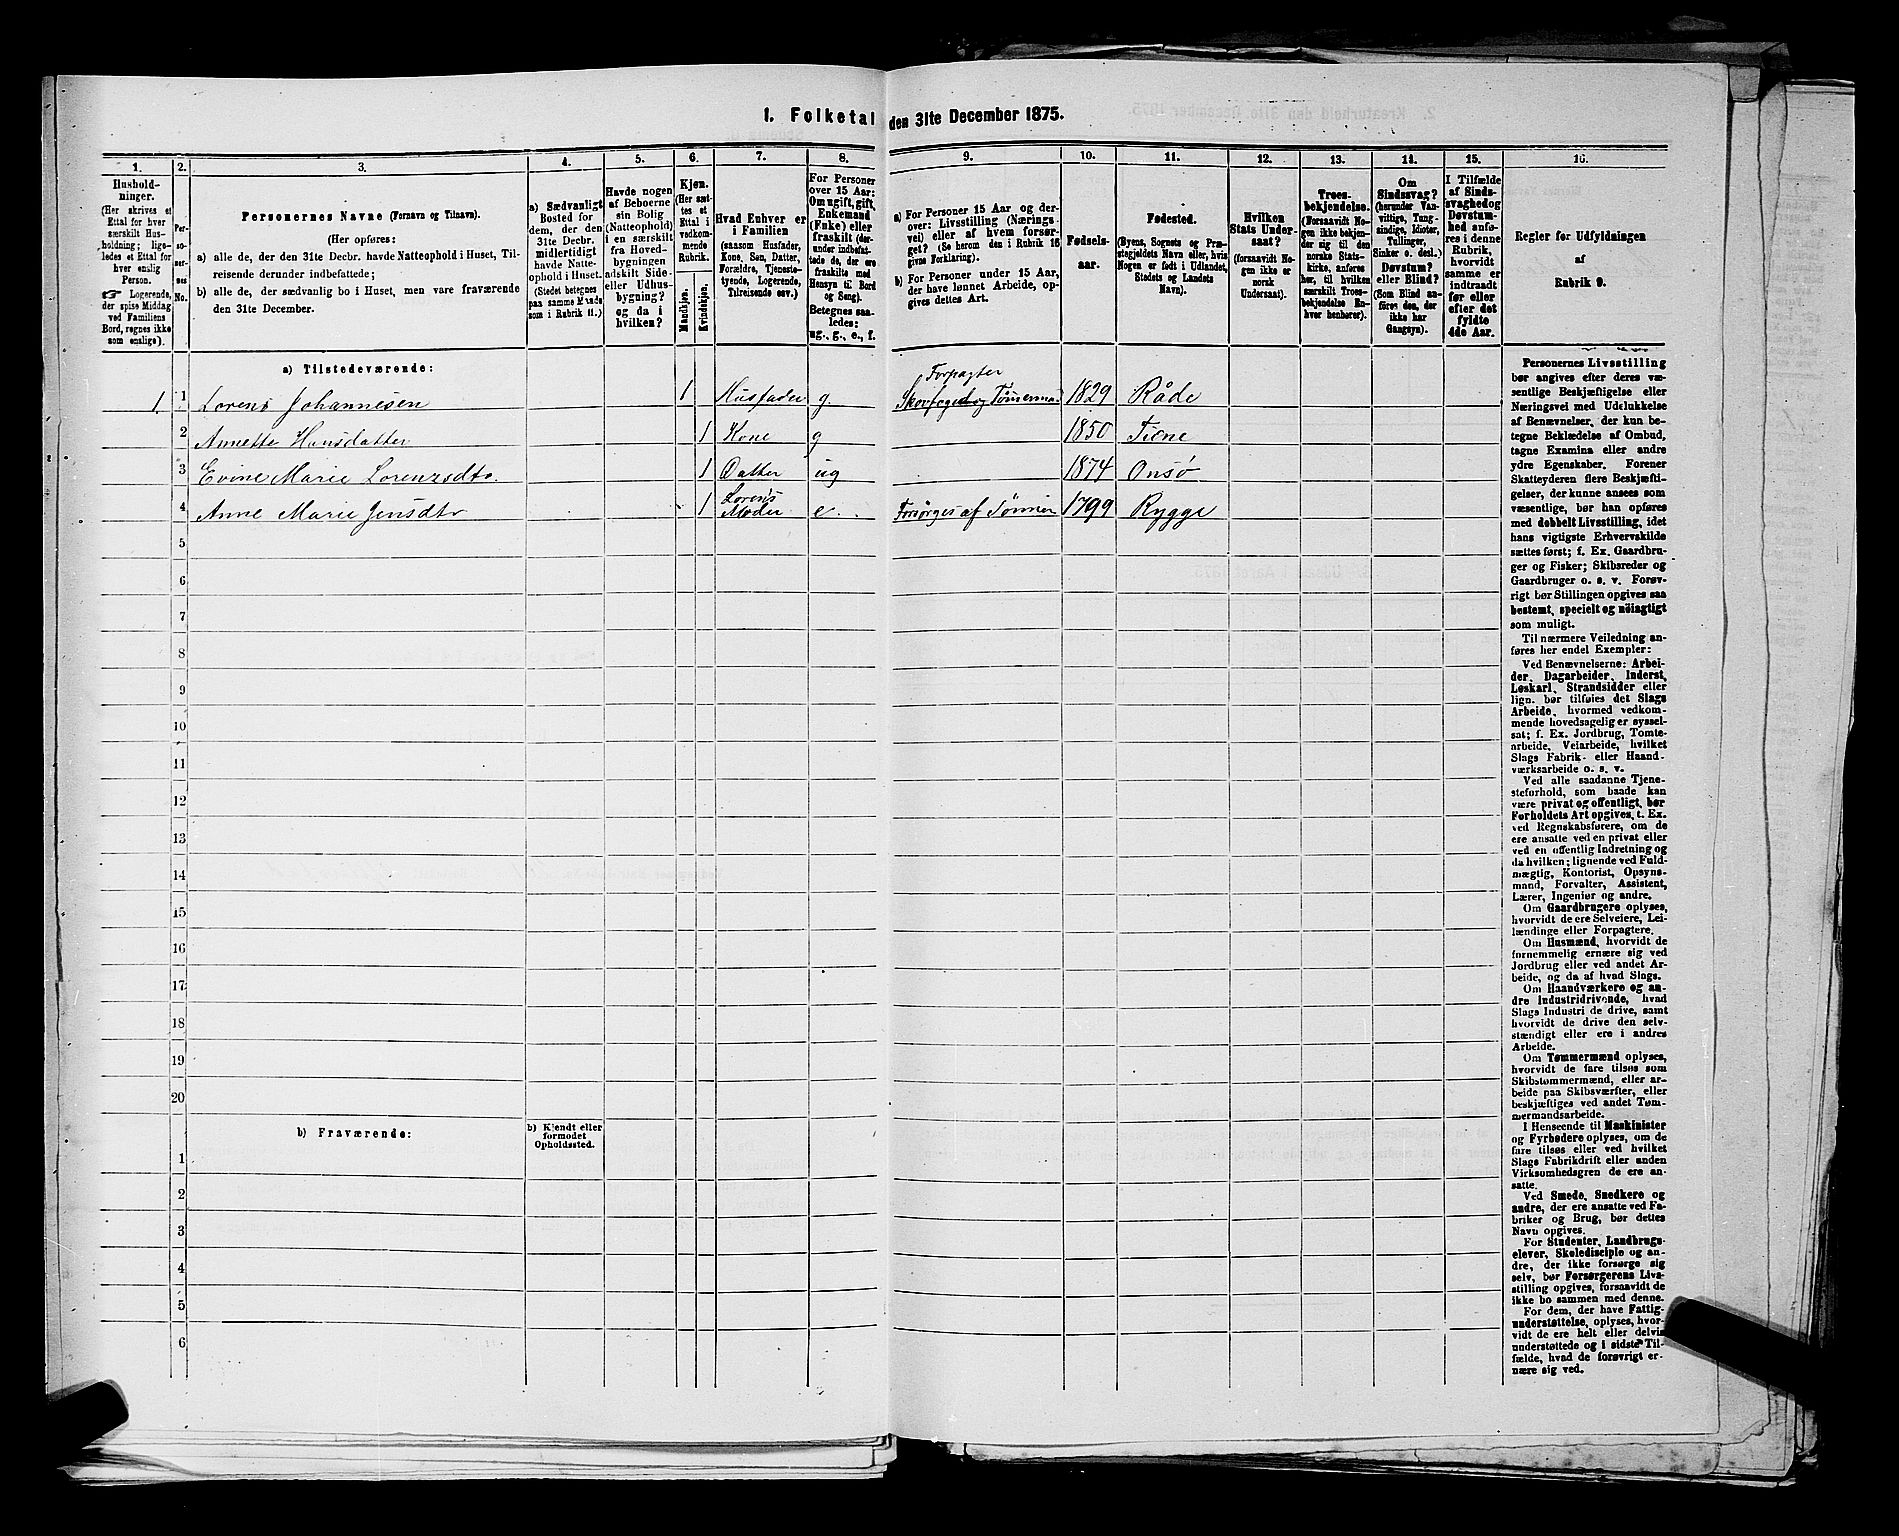 1. Folketal den 31te December 1875.
1. 2. 3. 4. 5. 6. 7. 8. 9. 10. 11. 12. 13. 14. 15. 16.
Hushold-
ninger.
(Her skrives et
Ettal for hver
særskilt Hus-
holdning; lige-
ledes et Ettal for
hver enslig
Person.
☞ Logerende,
der spise Middag
ved Familiens
Bord, regnes ikke
som enslige).
Per-
so-
ner-
nes
No.
Personernes Navne (Fornavn og Tilnavn).
(Her opføres:
a) alle de, der den 31te Decbr. havde Natteophold i Huset, Til-
reisende derunder indbefattede;
b) alle de, der sædvanlig bo i Huset, men vare fraværende
den 31te December.
a) Sædvanligt
Bosted for
dem, der den
31te Decbr.
midlertidigt
havde Natte-
ophold i Huset.
(Stedet betegnes
paa samme Maade
som i Rubrik 11.)
Havde nogen
af Beboerne
sin Bolig
(Natteophold)
i en særskilt
fra Hoved-
bygningen
adskilt Side-
eller Udhus-
bygning?
og da i
hvilken?
Kjøn.
(Her sæt-
tes et
Ettal i
vedkom-
mende
Rubrik.
Mandkjøn.
Kvindekjøn.
Hvad Enhver er
i Familien
(saasom Husfader,
Kone, Søn, Datter,
Forældre, Tjeneste-
tyende, Logerende,
Tilreisende osv.)
For Personer
over 15 Aar:
Om ugift, gift,
Enkemand
(Enke) eller
fraskilt (der-
under indbefat-
tede de, der ere
fraskilte med
Hensyn til Bord
og Seng).
Betegnes saa-
ledes:
ug., g., e., f.
a) For Personer 15 Aar og der-
over: Livsstilling (Nærings-
vei) eller af hvem forsør-
get? (Se herom den i Rubrik 16
givne Forklaring).
b) For Personer under 15 Aar,
der have lønnet Arbeide, op-
gives dettes Art.
Fødsels-
aar.
Fødested.
(Byens, Sognets og Præ-
stegjeldets Navn eller, hvis
Nogen er født i Udlandet,
Stedets og Landets
Navn).
Hvilken
Stats Under-
saat?
(forsaavidt No-
gen ikke er
norsk
Undersaat).
Troes-
bekjendelse.
(Forsaavidt No-
gen ikke bekjen-
der sig til den
norske Stats-
kirke, anføres
her, til hvilken
særskilt Troes-
bekjendelse En-
hver henhører).
Om
Sindssvag?
(herunder Van-
vittige, Tung-
sindige, Idioter,
Tullinger,
Sinker o. desl.)
Døvstum?
eller Blind?
(Som Blind an-
føres den, der
ikke har
Gangsyn).
I Tilfælde
af Sinds-
svaghed og
Døvstum-
hed anfø-
res i denne
Rubrik,
hvorvidt
samme er
indtraadt
før eller
efter det
fyldte
4de Aar.
Regler for Udfyldningen
af
Rubrik 9.
a) Tilstedeværende:
Forpagter
1 1 Lorens Johannesen 1 Husfader g Skovfoged og Tømmerma. 1829 Råde
2 Annette Hansdatter 1 Kone g 1850 Tiene
3 Evine Marie Lorenzsdtr. 1 Datter ug 1874 Onsø
Lorens
4 Anne Marie Jensdtr 1 Moder e. Forsørges af Sønnen 1799 Rygge
5
6
7
8
9
10
11
12
13
14
15
16
17
18
19
20
b) Fraværende:
b) Kjendt eller
formodet
Opholdssted.
1
2
3
4
5
6
Personernes Livsstilling
bør angives efter deres væ-
sentlige Beskjæftigelse eller
Næringsvei med Udelukkelse
af Benævnelser, der kun be-
tegne Beklædelse af Ombud,
tagne Examina eller andre
ydre Egenskaber. Forener
Skatteyderen flere Beskjæfti-
gelser, der kunne ansees som
væsentlige, bør han opføres
med dobbelt Livsstilling, idet
hans vigtigste Erhvervskilde
sættes først; f. Ex. Gaardbru-
ger og Fisker; Skibsreder og
Gaardbruger o. s. v. Forøv-
rigt bør Stillingen opgives saa
bestemt, specielt og nøiagtigt
som muligt.
Til nærmere Veiledning an-
føres her endel Exempler:
Ved Benævnelserne: Arbei-
der, Dagarbeider, Inderst,
Løskarl, Strandsidder eller
lign. bør tilføies det Slags
Arbeide, hvormed vedkom-
mende hovedsagelig er syssel-
sat; f. Ex. Jordbrug, Tomte-
arbeide, Veiarbeide, hvilket
Slags Fabrik- eller Haand-
værksarbeide o. s. v.
Ved alle saadanne Tjene-
steforhold, som baade kan
være privat og offentligt, bør
Forholdets Art opgives, t. Ex.
ved Regnskabsførere, om de
ere ansatte ved en privat eller
ved en offentlig Indretning og
da hvilken; lignende ved Fuld-
mægtig, Kontorist, Opsyns-
mand, Forvalter, Assistent,
Lærer, Ingeniør og andre.
Om Gaardbrugere oplyses,
hvorvidt de ere Selveiere, Lei-
lændinge eller Forpagtere.
Om Husmænd, hvorvidt de
fornemmelig ernære sig ved
Jordbrug eller ved andet Ar-
beide, og da af hvad Slags.
Om Haandværkere og an-
dre Industridrivende, hvad
Slags Industri de drive, samt
hvorvidt de drive den selv-
stændigt eller ere i andres
Arbeide.
Om Tømmermænd oplyses,
hvorvidt de fare tilsøs som
Skibstømmermænd, eller ar-
beide paa Skibsværfter, eller
beskjæftiges ved andet Tøm-
mermandsarbeide.
I Henseende til Maskinister
og Fyrbødere oplyses, om de
fare tilsøs eller ved hvilket
Slags Fabrikdrift eller anden
Virksomhedsgren de ere an-
satte.
Ved Smede, Snedkere og
andre, der ere ansatte ved Fa-
briker og Brug, bør dettes
Navn opgives.
For Studenter, Landbrugs-
elever, Skoledisciple og an-
dre, der ikke forsørge sig
selv, bør Forsørgerens Livs-
stilling opgives, forsaavidt de
ikke bo sammen med denne.
For dem, der have Fattig-
understøttelse, oplyses, hvor-
vidt de ere helt eller delvis
understøttede og i sidste Til-
fælde, hvad de forøvrigt er-
nære sig ved.